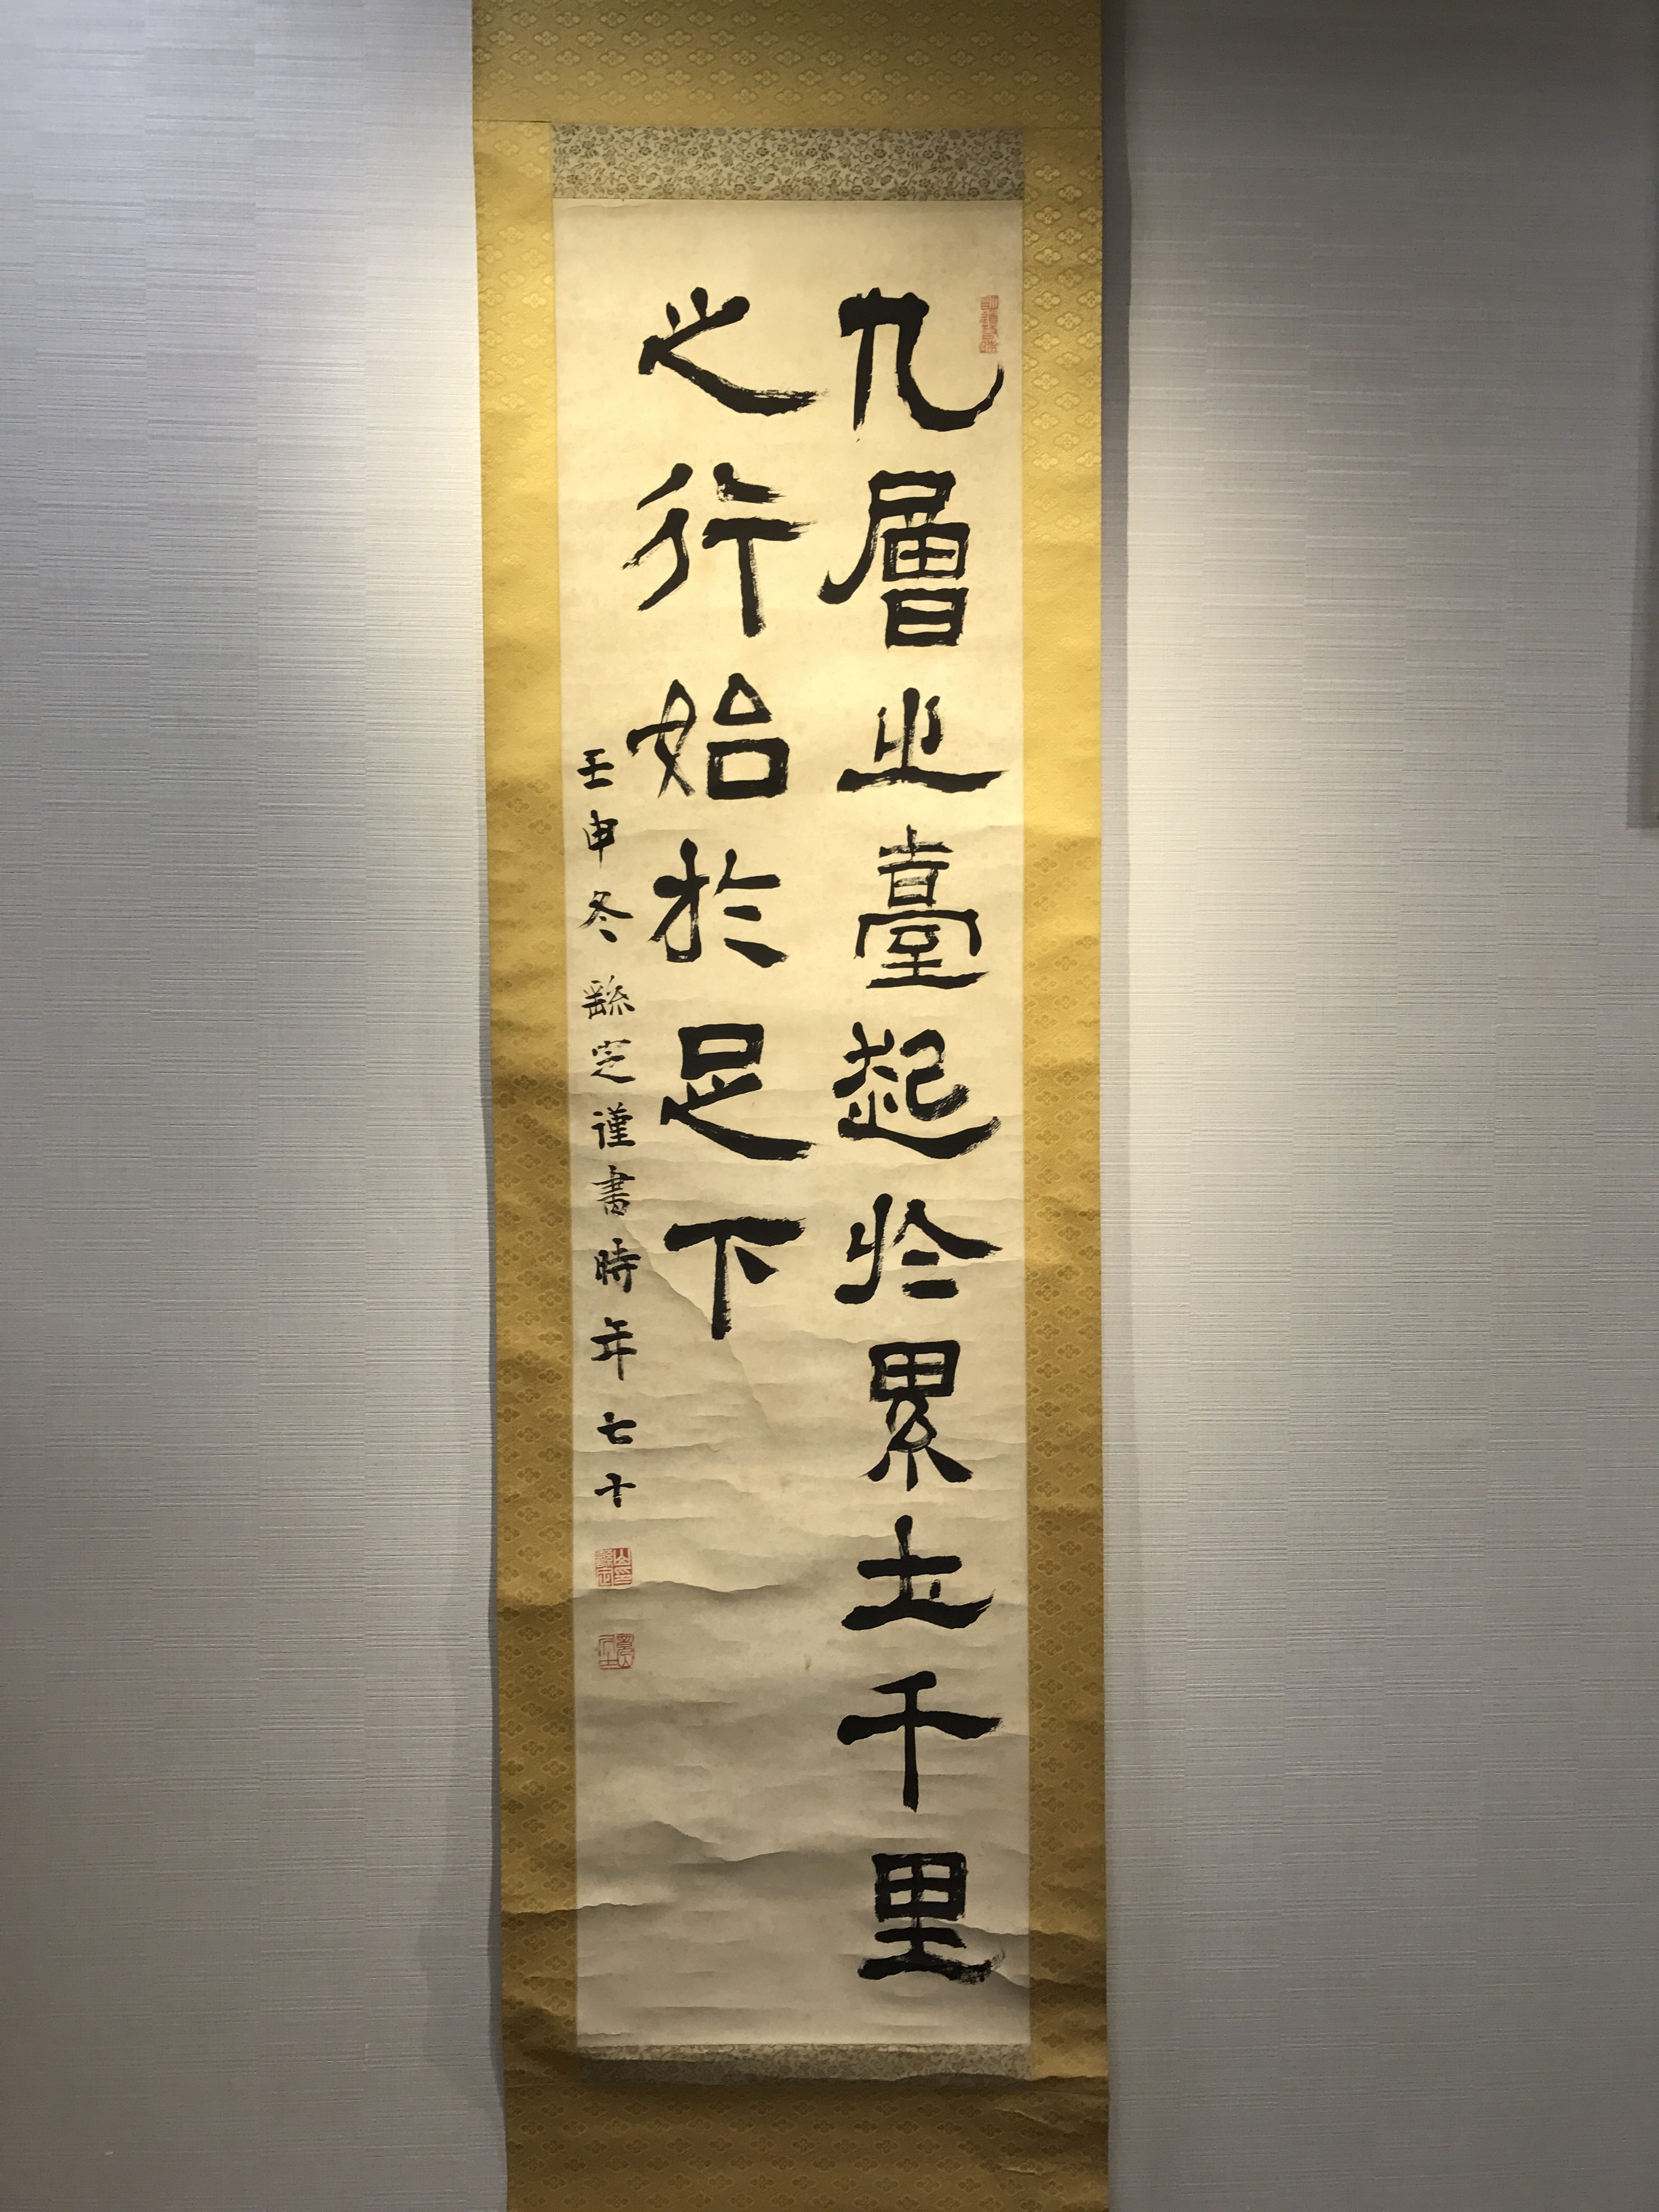 九層之臺起於累土千里
之行始於足下
壬申冬繇定謹書時年七十